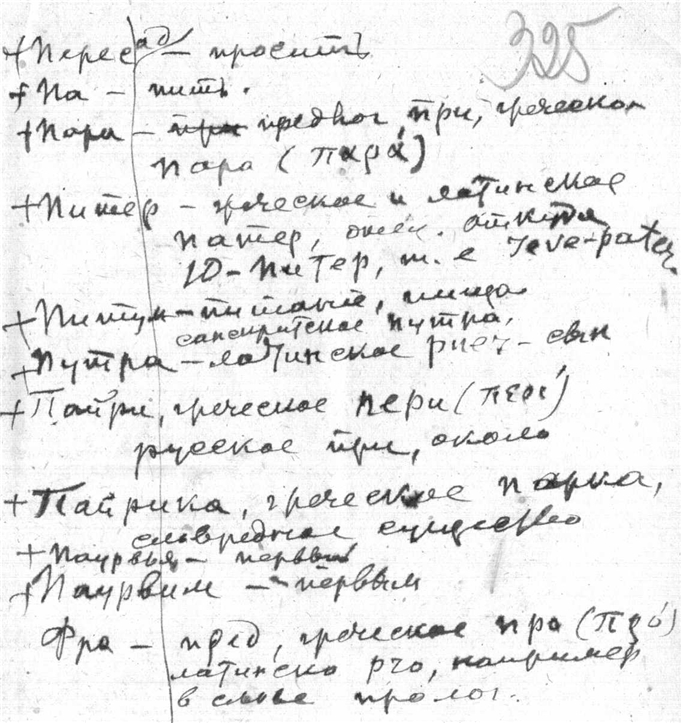 325
+ Перес ад – просить
+ Па – пить.
+ Пара – предлог при, греческое
пара (παρά)
+ Питер – греческое и латинское
патер, отец. отсюда
Ю-питер, т. е Jeve-pater
+ Питум – питание, пища
санскритское путра,
+ Путра – латинское puer – сын
+ Пайри, греческое пери (περί)
русское при, около
+ Пайрика, греческое парка,
зловредное существо
+ Паурвья – первый
+ Паурвим – первым
Фра – пред, греческое про (πρό)
латинско pro, например
в слове пролог.